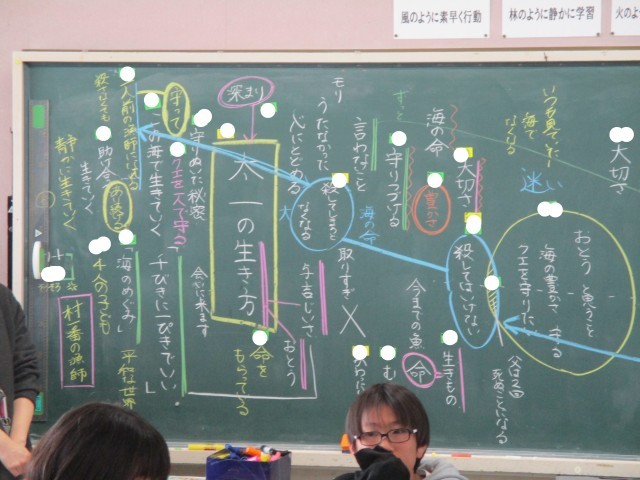 風のように素早く行動
林のように静かに学習
火のよ
大切さ
いつも見ていた
海で
なくなる
迷い
おとう と戦うこと
海の豊かさ 守る
クエを守りたい
父は2回
死ぬことになる
大切さ
殺してはいけない
生きもの
海の命
豊かさ
今までの魚
命
ずっと
守りつづける
言わないこと
海の命
取りすぎ ×
モリ
うたなかった
心にとめる
殺してしまうと
なくなる
大
与吉じいさ
おとう
深まり
太一の生き方
命を
もらってる
守りぬいた秘密
会いに来ます
守って
クエを一人で守る
この海で生きていく
千びきに一ぴきでいい
一人前の漁師になる
殺さなくても
助け合
生きていく
「海のめぐみ」
平和な世界
4人の子ども
静かに生きていく
村一番の漁師